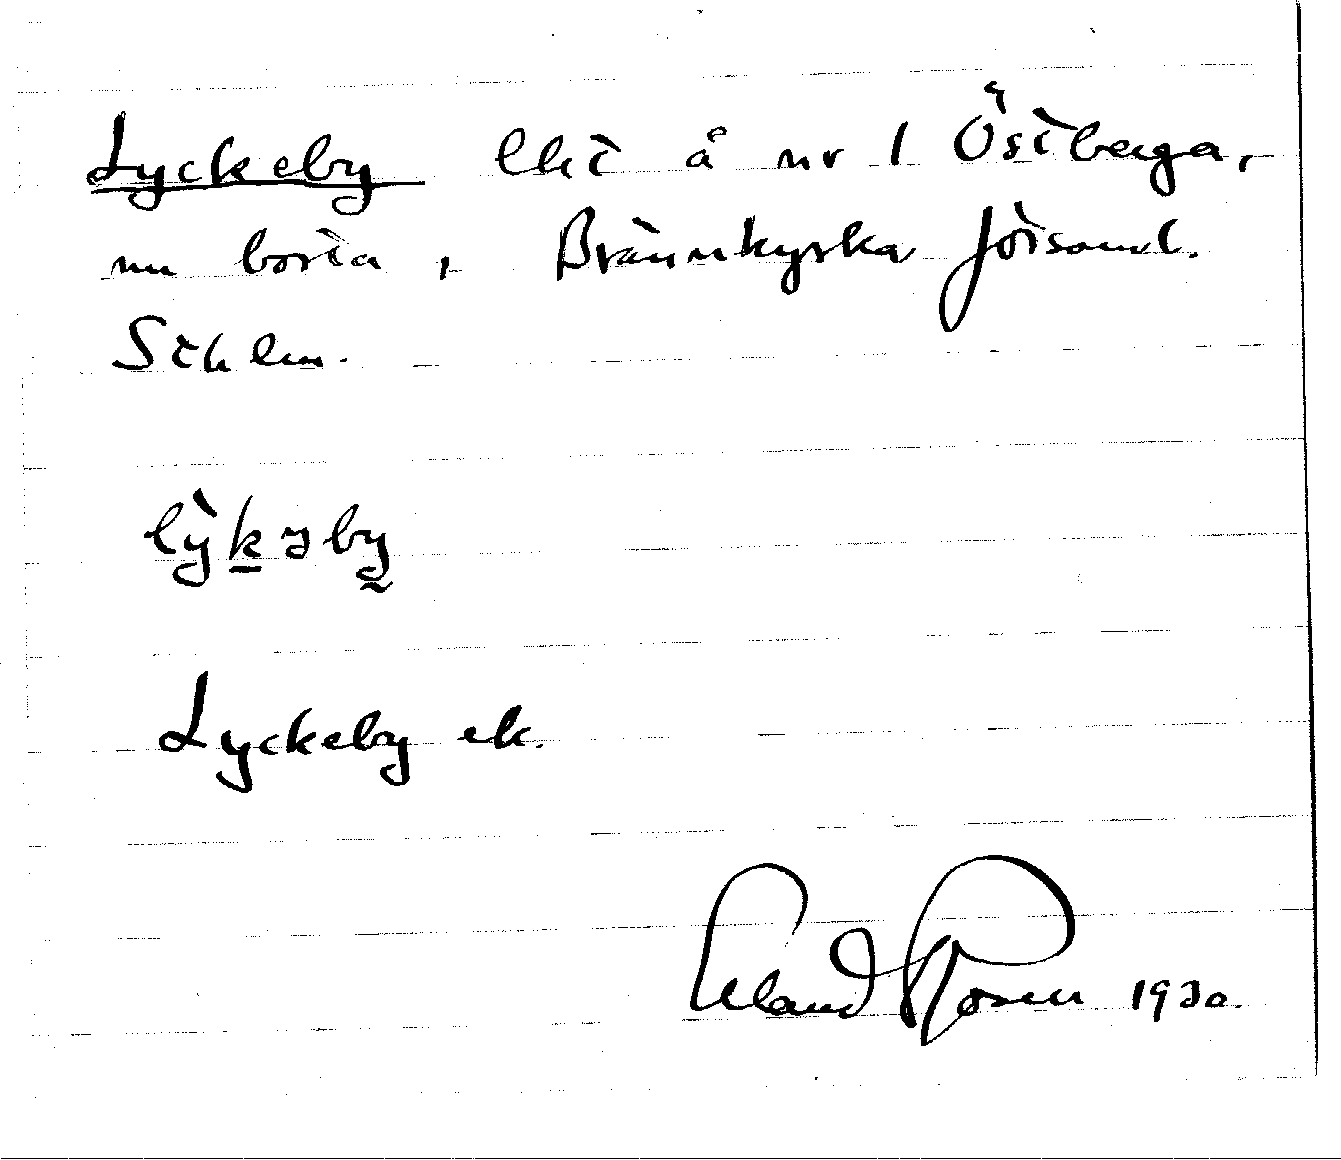 Lyckeby lht å nr 1 Östberga,
nu borta, Brännkyrka församl.
Sthlm.
lỳkəby
Lyckeby ek.
Erland Rosen 1930.